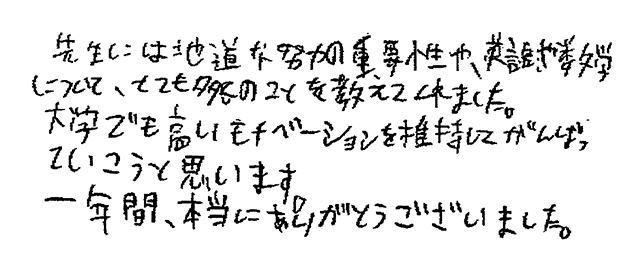 先生には地道な努力の重要性や、英語や数学
について、とても多くのことを教えてくれました。
大学でも高いモチベーションを維持してがんばっ
ていこうと思います
一年間、本当にありがとうございました。